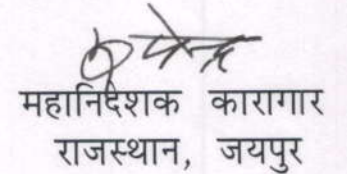 महानिदेशक कारागार
राजस्थान, जयपुर